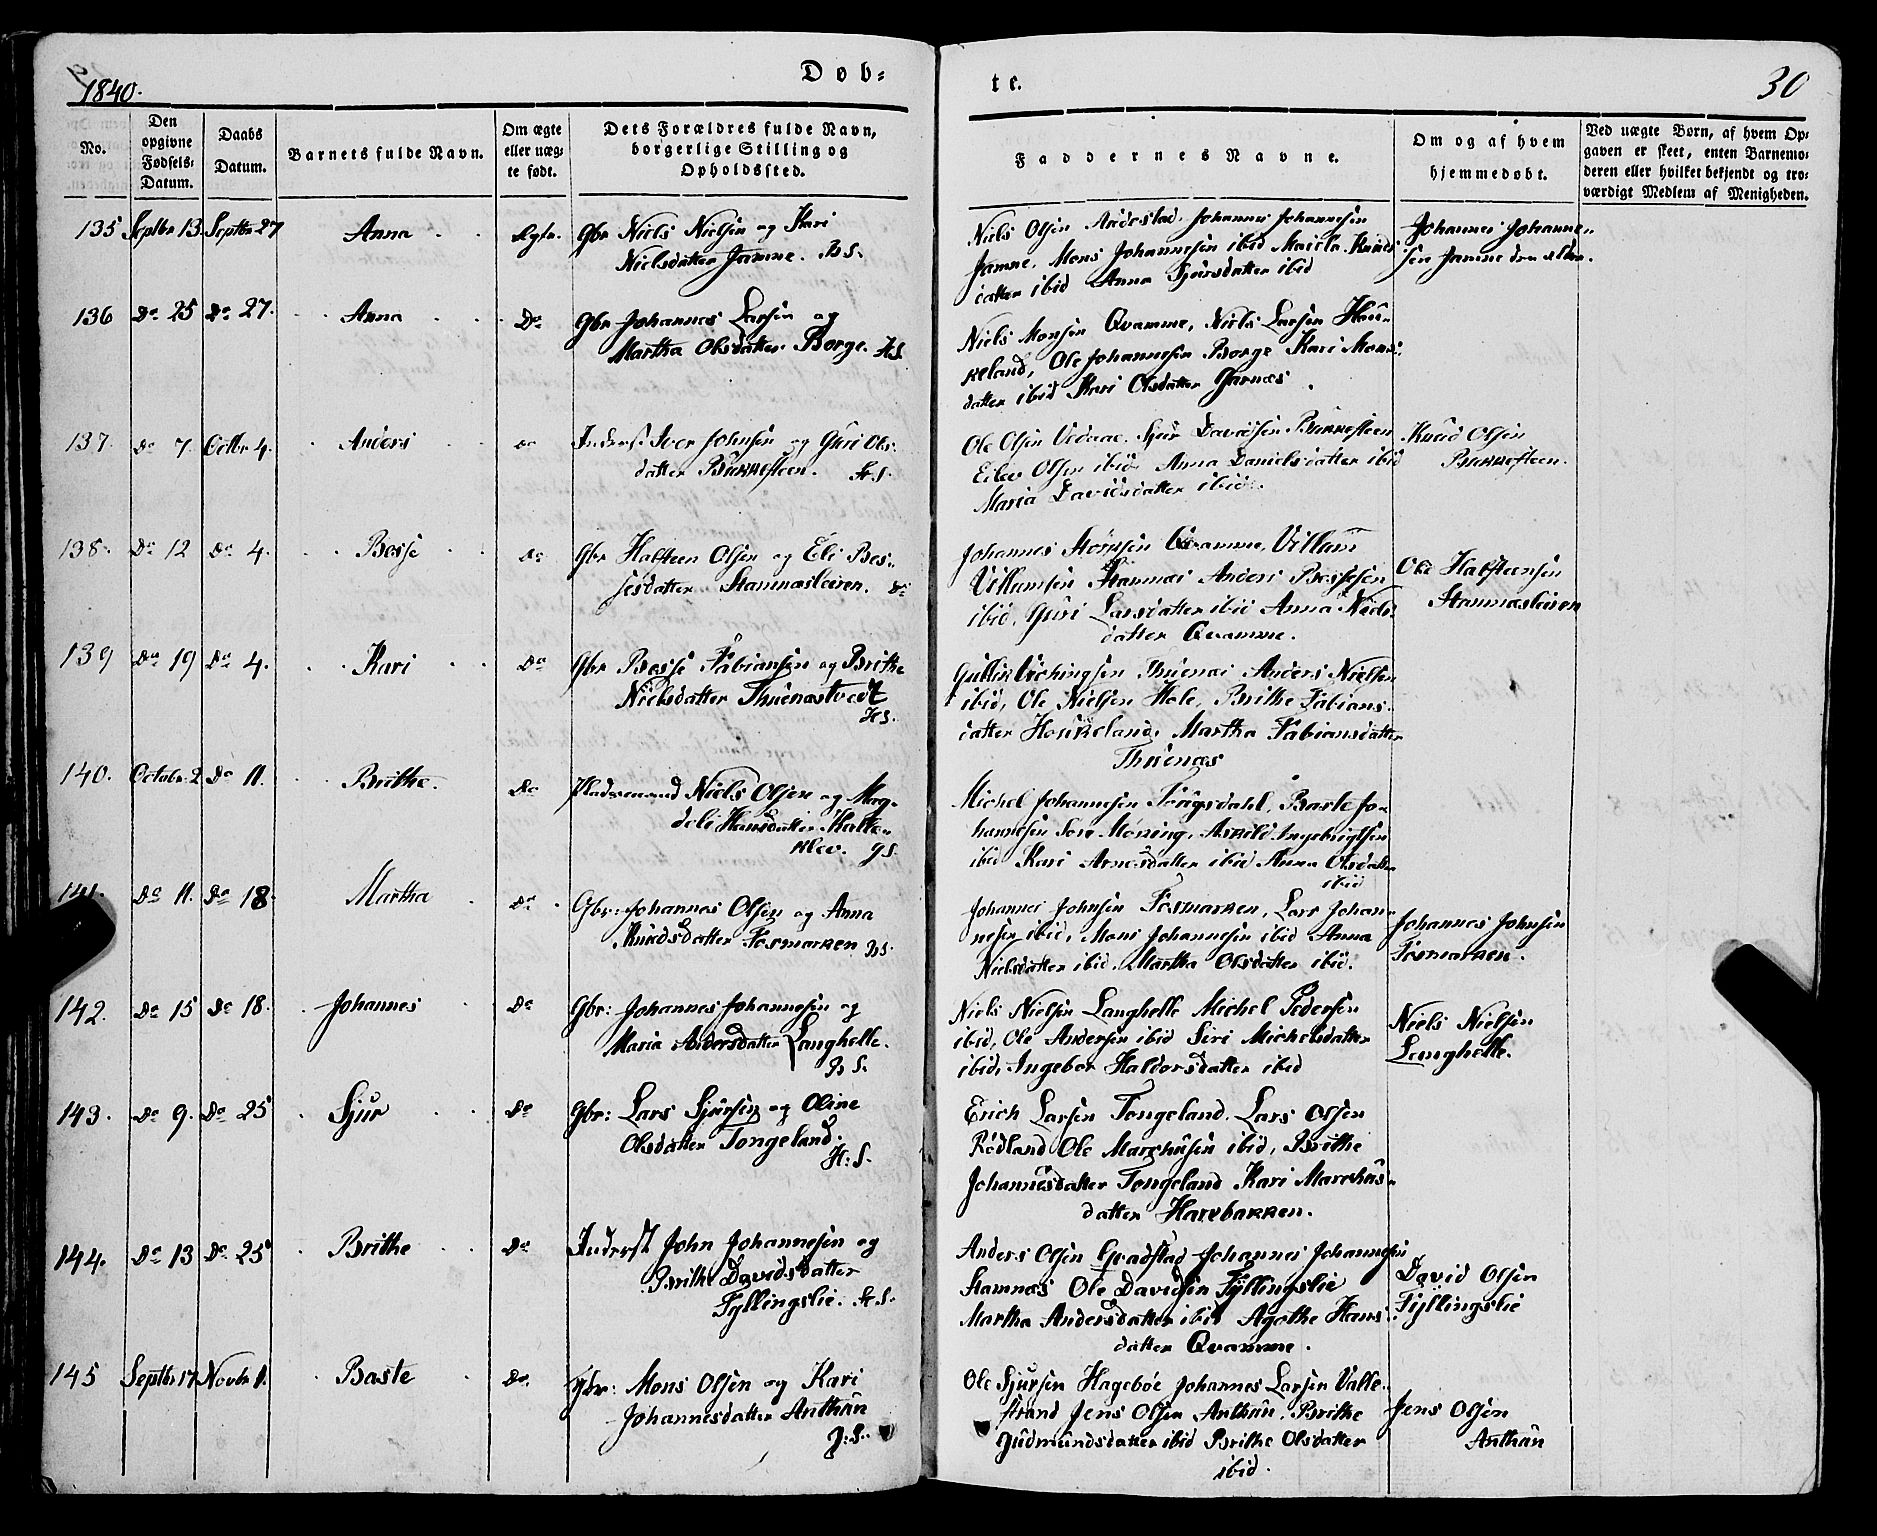 1840.
Døb-
te.
30
No.
Den
opgivne
Fødsels-
Datum.
Daabs
Datum.
Barnets fulde Navn.
Om ægte
eller uæg-
te født.
Dets Forældres fulde Navn,
borgerlige Stilling og
Opholdssted.
Faddernes Navne.
Om og af hvem
hjemmedøbt.
Ved uægte Børn, af hvem Op-
gaven er skeet, enten Barnemo-
deren eller hvilket bekjendt og tro-
værdigt Medlem af Menigheden.
135 Septbr 13 Septbr 27 Anna Ægte. Gbr Niels Nielsen og Kari
Nielsdatter Jamne.
Niels Olsen Andestad, Johannes Johannesen
Jamne, Mons Johannesen ibid Knuds
datter ibid Anna Sjursdatter ibid
Johannes Johanne-
sen Jamne den eldre.
136 Do 25 Do 27. Anna Do Gbr Johannes Larsen og
Martha Olsdatter Borge. H.S.
Niels Monsen Qvamme, Niels Larsen Hou-
keland, Ole Johannesen Borge Kari Mons-
datter ibid Kari Olsdatter Garnæs.
137. Do 7. Octbr 4. Anders do Inderst Iver Johnsen og Guri Ols-
datter Bukkesteen. St.S.
Ole Olsen Vedaae. Sjur Davidsen Bukkesteen
Eilev Olsen ibid Anna Danielsdatter ibid
Maria Davidsdatter ibid.
Knud Olsen
Bukkesteen.
138. Do 12 Do 4. Besse do Gbr Halsteen Olsen og Eli Bes-
sesdatter Stamnæsleiren. Do
Johannes Qvamme, Villum
Villumsen Stamnæs Anders Bessesen
ibid, Guri Larsdatter ibid Anna Niels-
datter Qvamme.
Ole Halsteensen
Stamnæsleiren
139 Do 19 Do 4. Kari Do Gbr Besse Fabiansen og Brithe
Nielsdatter Thuenæstvedt
H.S.
Gullik Vichingsen Thuenæs Anders Nielsen
ibid, Ole Nielsen Hole, Brithe Fabians-
datter Houkeland, Martha Fabiansdatter
Thuenæs
140. Octobr. 2 Do 11. Brithe. Do Pladsemand Niels Olsen og Mag-
deli Hansdatter Kalte-
klev. G.S.
Michel Johannesen Baste Jo-
hannesen Sore Møning, Askild Ingebrigtsen
ibid Kari Arnesdatter ibid Anna Olsdatter
ibid
141. Do 11. Do 18. Martha Do Gbr: Johannes Olsen og Anna
Knudsdatter Fosmarken
Johannes Johnsen Fosmarken, Lars Johan-
nesen ibid, Mons Johannesen ibid Anna
Nielsdatter ibid, Martha Olsdatter ibid.
Johannes Johnsen
Fosmarken.
142. Do 15 Do 18. Johannes Do Gbr: Johannes Johannesen og
Maria Andersdatter Langhelle.
Niels Nielsen Langhelle Michel Pedersen
ibid, Ole Andersen ibid Siri Michelsdatter
ibid, Ingebor Haldorsdatter ibid
Niels Nielsen
Langhelle.
143. Do 9. Do 25 Sjur Do Gbr: Lars Sjursen og Oline
Olsdatter Tongeland.
H:S.
Erich Larsen Tongeland. Lars Olsen
Rødland Ole Marchusen ibid, Brithe
Johannesdatter Tongeland Kari Marchus-
datter Harebakken.
144. Do 13 Do 25 Brithe Do Inderst John Johannesen og
Brithe Davidsdatter
Fyllingslie. St.S.
Anders Olsen Grødstad Johannes Johannesen
Stamnæs Ole Davidsen Fyllingslie
Martha Andersdatter ibid Agathe Hans-
datter Qvamme.
David Olsen
Fyllingslie
145 Septbr 17 Novbr 1. Baste Do. Gbr: Mons Olsen og Kari
Johannesdatter Anthun
Ole Sjursen Hagebøe Johannes Larsen Valle-
strand Jens Olsen Anthun, Brithe
Gudmundsdatter ibid Brithe Olsdatter
ibid.
Jens Olsen
Anthun